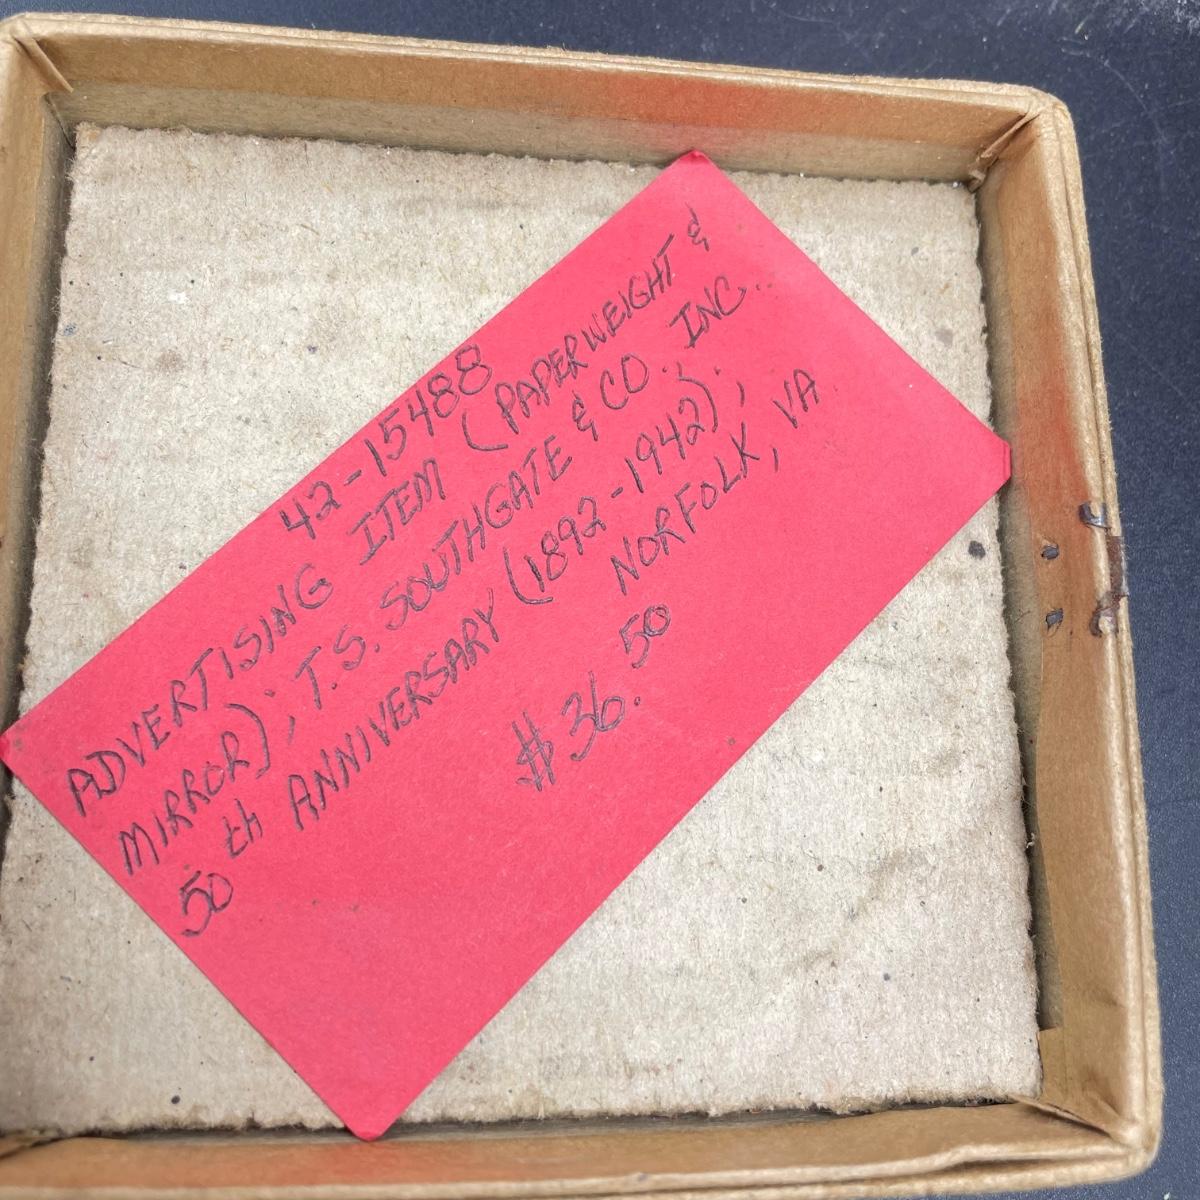 42-15488
ADVERTISING ITEM (PAPERWEIGHT &
MIRROR); T.S. SOUTHGATE & CO., INC..
50th ANNIVERSARY (1892-1942);
NORFOLK, VA
$36.50